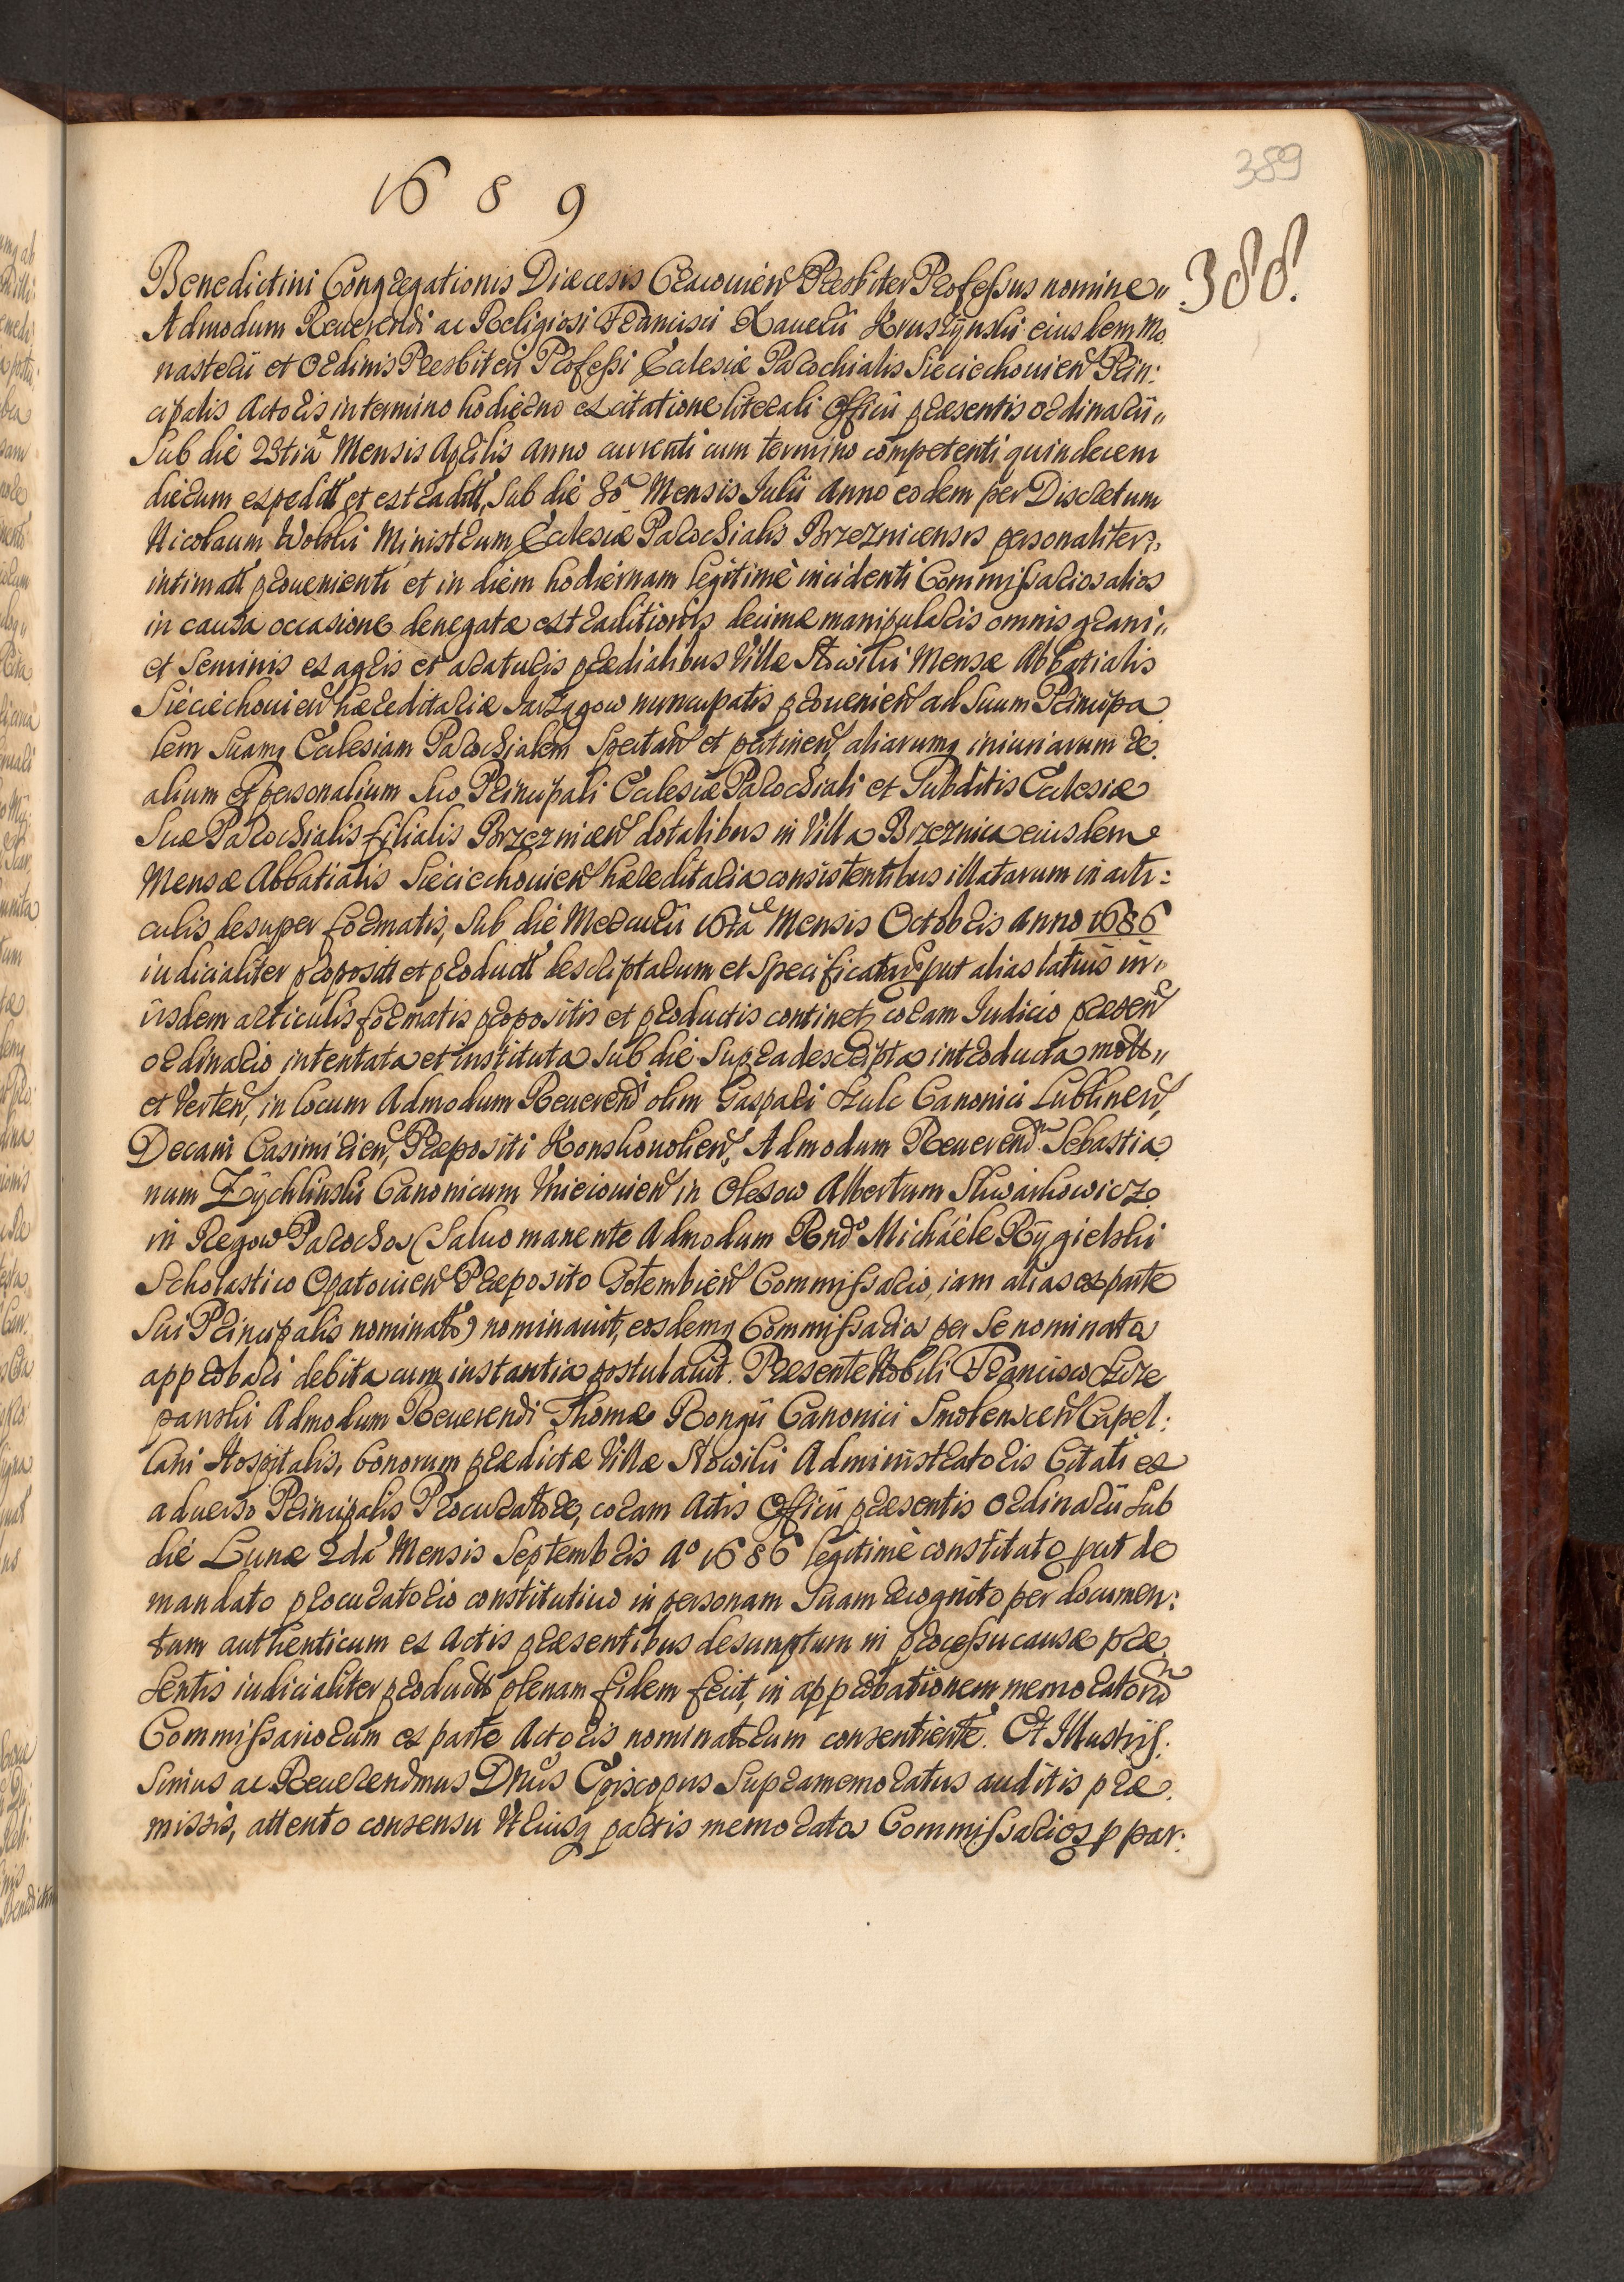 389
1689
388.
Benedictini Congregationis Diæcesis Cracouień Presbiter Professus nomine„
Admodum Reuerendi ac Religiosi Francisci Xauerii Kruszynski eiusdem Mo
nasterii et Ordinis Presbiteri Professi Ecclesiæ Parochialis Sieciechouień Prin:
cipalis Actoris in termino hodierno ex citatione literali Officii præsentis ordinarii„
Sub die 23tia Mensis Aprilis anno currenti cum termino competenti quindecem
dierum expedit et extradit, Sub die 8â Mensis Iulii Anno eodem per Discretum
Nicolaum Wolski Ministrum Ecclesiæ Parochialis Brzeznicensis personaliter„
intimati prouenienti et in diem hodiernam legitimè incidenti Commissarios alios
in causa occasione denegatæ extraditionis decimæ manipularis omnis grani„
et Seminis ex agris et araturis prædialibus Villæ Słowiki Mensæ Abbatialis
Sieciechouień hæreditariæ nuncupatis prouenień ad Suum Principa
lem Suamq Ecclesiam Parochialem Spectań et pertineń, aliarumq iniuriarum re
alium et personalium Suo Principali Ecclesiæ Parochiali et Subditis Ecclesiæ
Suæ Parochialis filialis Brzeznicień dotalibus in Villa Brzeznica eiusdem
Mensæ Abbatialis Sieciechouień hæreditaria consistentibus illatarum in arti:
culis desuper formatis, Sub die Mercurii 16tâ Mensis Octobris Anno 1686
iudicialiter proposit et product descriptarum et Specificatarum put alias latius in„
iisdem articulis formatis propositis et productis continetr coram Iudicio præseń
ordinario intentata et instituta Sub die Supradescripta introducta mota„
et Verteń, in locum Admodum Reuerendi olim Gaspari Szulc Canonici Lublineń,
Decani Casimirień, Præpositi Konskouolień, Admodum Reuerend Sebastia
num Zychlinski Canonicum Unieiouień in Olesow Albertum Skwarkowicz
in Regow Parochos (Saluo manente Admodum Rndo Michäele Rygielski
Scholastico Opatouień Præposito Gołembień Commissario, iam alias ex parte
Sui Principalis nominato) nominauit, eosdemq Commissarios per Se nominatos
approbari debita cum instantia postulauit. Præsente Nobili Francisco Szcze
panski Admodum Reuerendi Thomæ Rongii Canonici Smolenscień Capel:
lani Hospitalis, bonorum prædictæ Villæ Słowiki Administratoris Citati ex
aduerso Principalis Procuratore, coram Actis Officii præsentis Ordinarii Sub
die Lunæ 2dâ Mensis Septembris Ao 1686 legitimè constituto, put de
mandato procuratorio constitutiuo in personam Suam recognito per documen:
tum authenticum ex Actis præsentibus desumptum in processu causæ præ
sentis iudicialiter producto plenam fidem fecit, in approbationem memorator
Commissariorum ex parte Actoris nominatorum consentiente. Et Illustris:
Simus ac Reuerendmus Dnus Episcopus Supramemoratus auditis præ
missis, attento consensu Utriusq partis memoratos Commissarios p par: